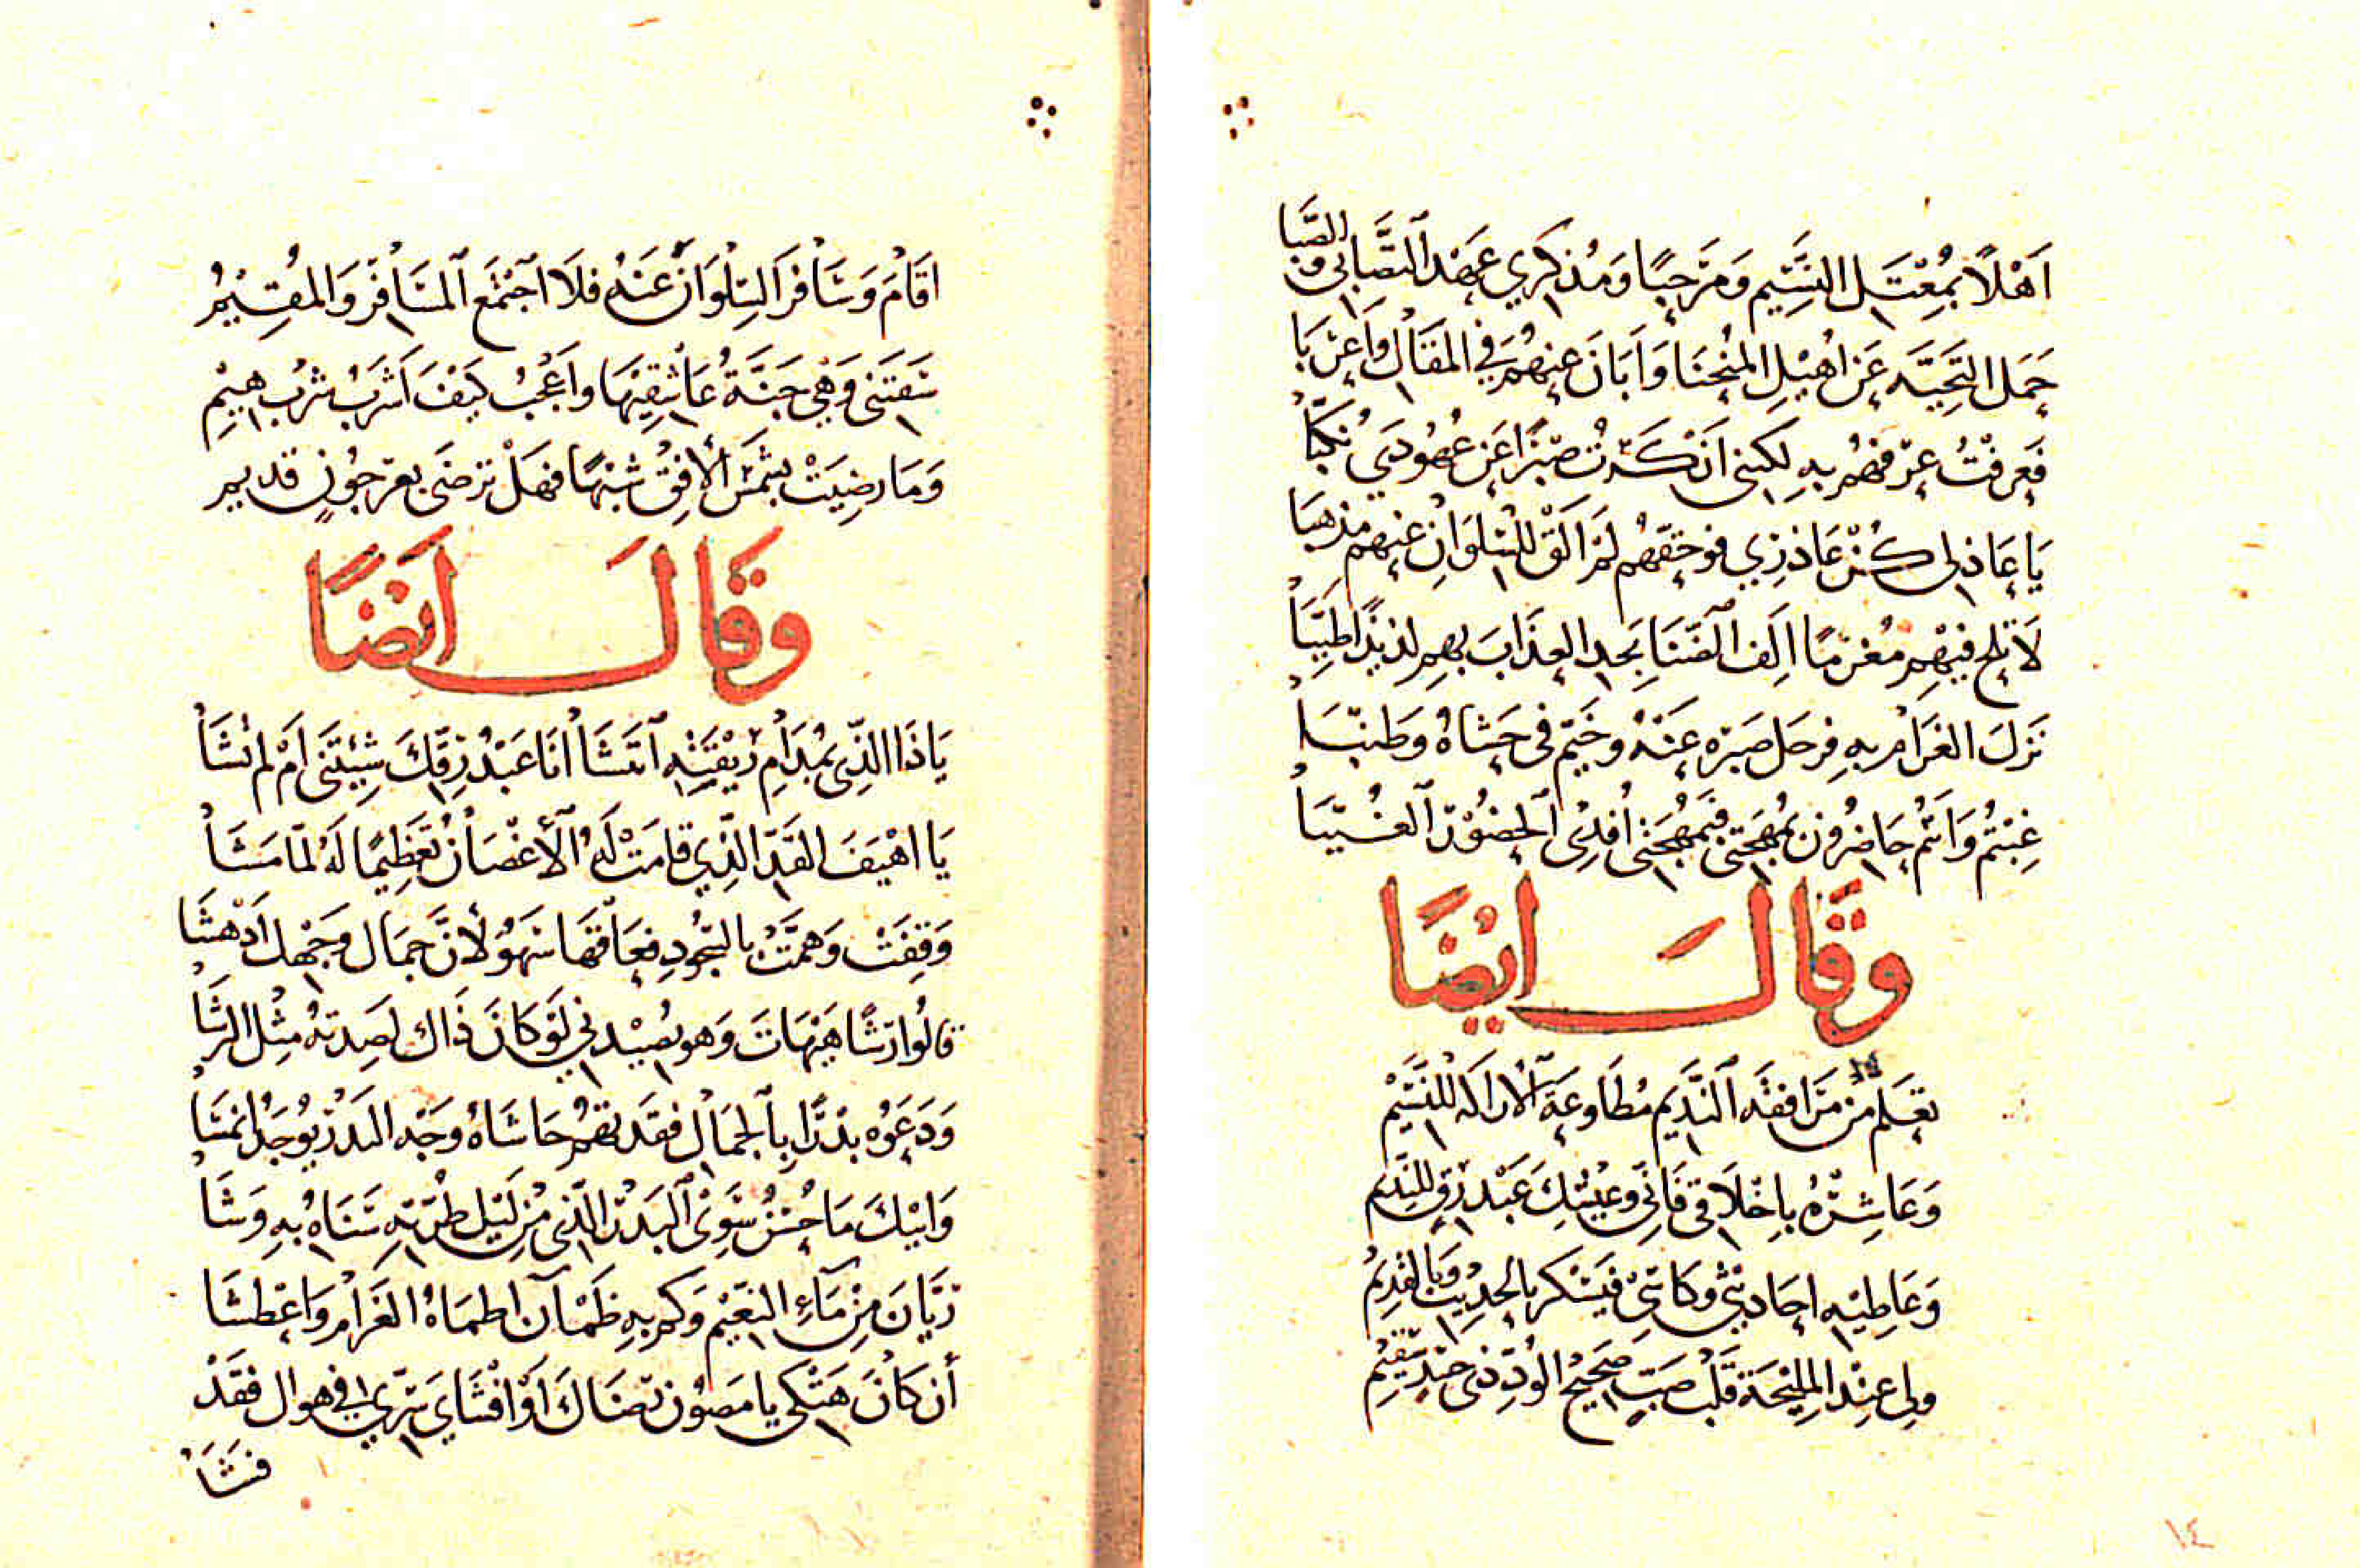 اَهْلاً بمُعْتَلِ النَسِّيم وَمَرْحَبًا وَمُذكِري عَهْد اَلتَّصَّابي وَالصَّبا
حَمَل التَحِيَّه عَن اهُيْلِ المنُحنَا وَاَبَانَ عنهُم في المقَال وَاَعرَبَا
فَعَرفْتُ عرْفهُم بهِ لكِننى اَنْكَرْتُ صَبْرًا عَن عُهُودِي نُكّبَا
يَا عَاذلى كُنْ عَاذِرِي فوحَقّهم لَمْ اَلَقْ للسُلوَانِ عنهم مذهبَا
لاَ تلح فيهْم مُغرمًا اَلِف اَلضَنَا يَجد العذَابَ بهم لذيذًا طَيِّبَا
نَزلَ الغَرَام بهِ فرحَل صَبرَه عَنهُ وخَيّم فى حَشاهُ وَطنبّا
غِبْتُم وَاَنتُم حَاضرُون بمُهجَتى فبمُهجَتى اُفدِى اَلحضُوْرَ اَلغُيّبَا
وقَالَ ايْضًا
تعَلم مْن مرَافقَه اَلنَدِيم مُطَاوعَة اَلاراكَه للنَسِيْم
وَعَاشِرْهُ باخْلاَقى فَانِّى وعَيْشكِ عَبْد رقٍ للنَدِيم
وَعَاطِيْه احَادِيثى وكَاسَىْ فيَسْكر بالحدِيْث وَبالقدِيمُ
ولى عنْد المليْحَة قَلْبُ صَبٍ صَحِيْح الودِّ ذى جَسَدٍ سَقيْم
اقَامَ وَسَافرَ السِلوَان عَنهُ فلاَ اَجتْمَع المسَافر وَالمُقِيْمُ
سَقتَنى وَهْي جَنَّة عَاشقِيهَا واَعْجَبُ كيَفَ اَشرَبُ شرْبُ هيِم
وَمَا رضِيَتْ بشمسَ الأفقُ شبْهًا فهَلْ ترضَى بعرجُونٍ قديم
وقَالَ ايَضًا
يَا ذَا الذِّى بمُدَام رِيْقتِه اَنتَشَا انَا عَبْدُ رِقِّكَ شِيْتنَى اَمْ لم تشَا
يَا اهْيَفَ القَدِّ الذِّي قامَتْ لَهُ اَلأغْصَانُ تعَظِيمًا لَهُ لمّا مَشَا
وَقِفَتْ وَهمَّتْ بالسجُودِ فعَاقهَا سَهوُ لأنَّ جمَال وَجَهك اَدْهشَا
قالُوا رَشًا هَيْهَاتَ وَهو يُصيْدنى لَوْ كَانَ ذَاك لصَدتهُ مثِل الرشَا
وَدَعَوُه بدْرًا بِاَلجمَالِ فقَد تقمْ حَاشَاهُ وَجْه البَدْر يوُجَد انمشَا
وَابيْكَ مَا حُسْنُ سِوَىْ اَلبَدْرْ الذّى منْ لَيْل طُرّتهِ سَنَاهُ بهِ وَشَا
رَيَّانَ منْ مَآءِ النعَيْم وَكم بهِ ظَمْآن اظمَاهُ الغَرَام وَاعْطشَا
أن كَانَ هَتْكى يا مَصُون رضَاكَ اَوْ افْشَاي سرّي فى هواك فقَدْ
فشَا